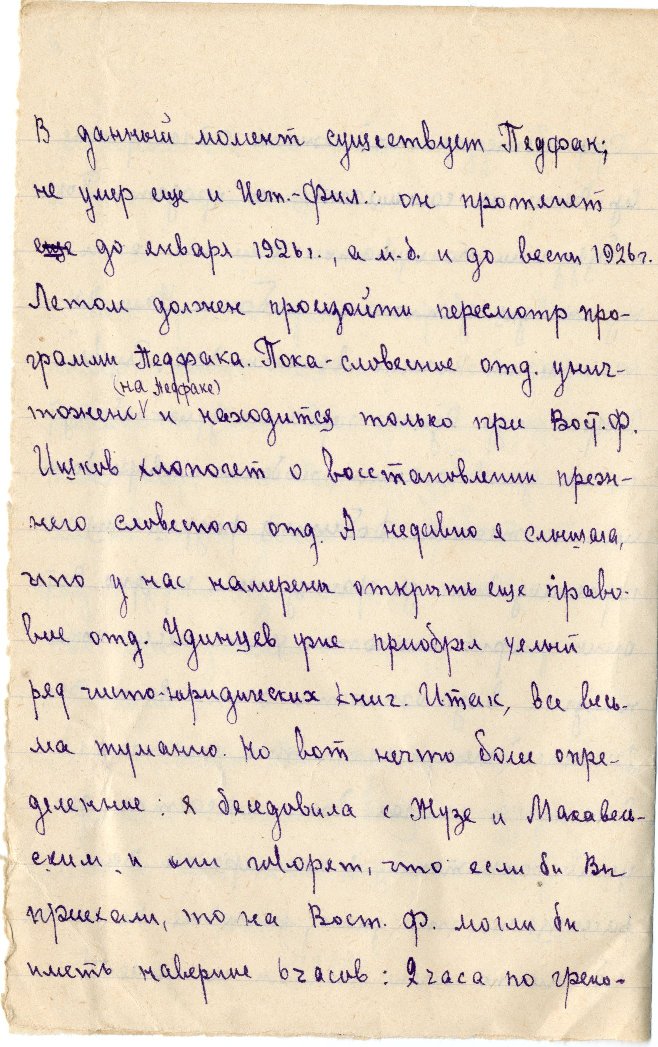 В данный момент существует Педфак;
не умер еще и Ист.-Фил.: он протянет
еще до января 1926 г., а м.б. и до весны 1926 г.
Летом должен произойти пересмотр про-
граммы Педфака. Пока - словесное отд. унич-
(на Педфаке)
тожено и находится только при Вост. Ф.
Ишков хлопочет о восстановлении преж-
него словесного отд. А недавно я слышала,
что у нас намерены открыть еще право-
вое отд. Удинцев уже приобрел целый
ряд чисто-юридических книг. Итак, все весь-
ма туманно. Но вот нечто более опре-
деленное: я беседовала с Жузе и Маковель-
ским, и они говорят, что если бы Вы
приехали, то на Вост. Ф. могли бы
иметь наверное 6 часов: 2 часа по греко-